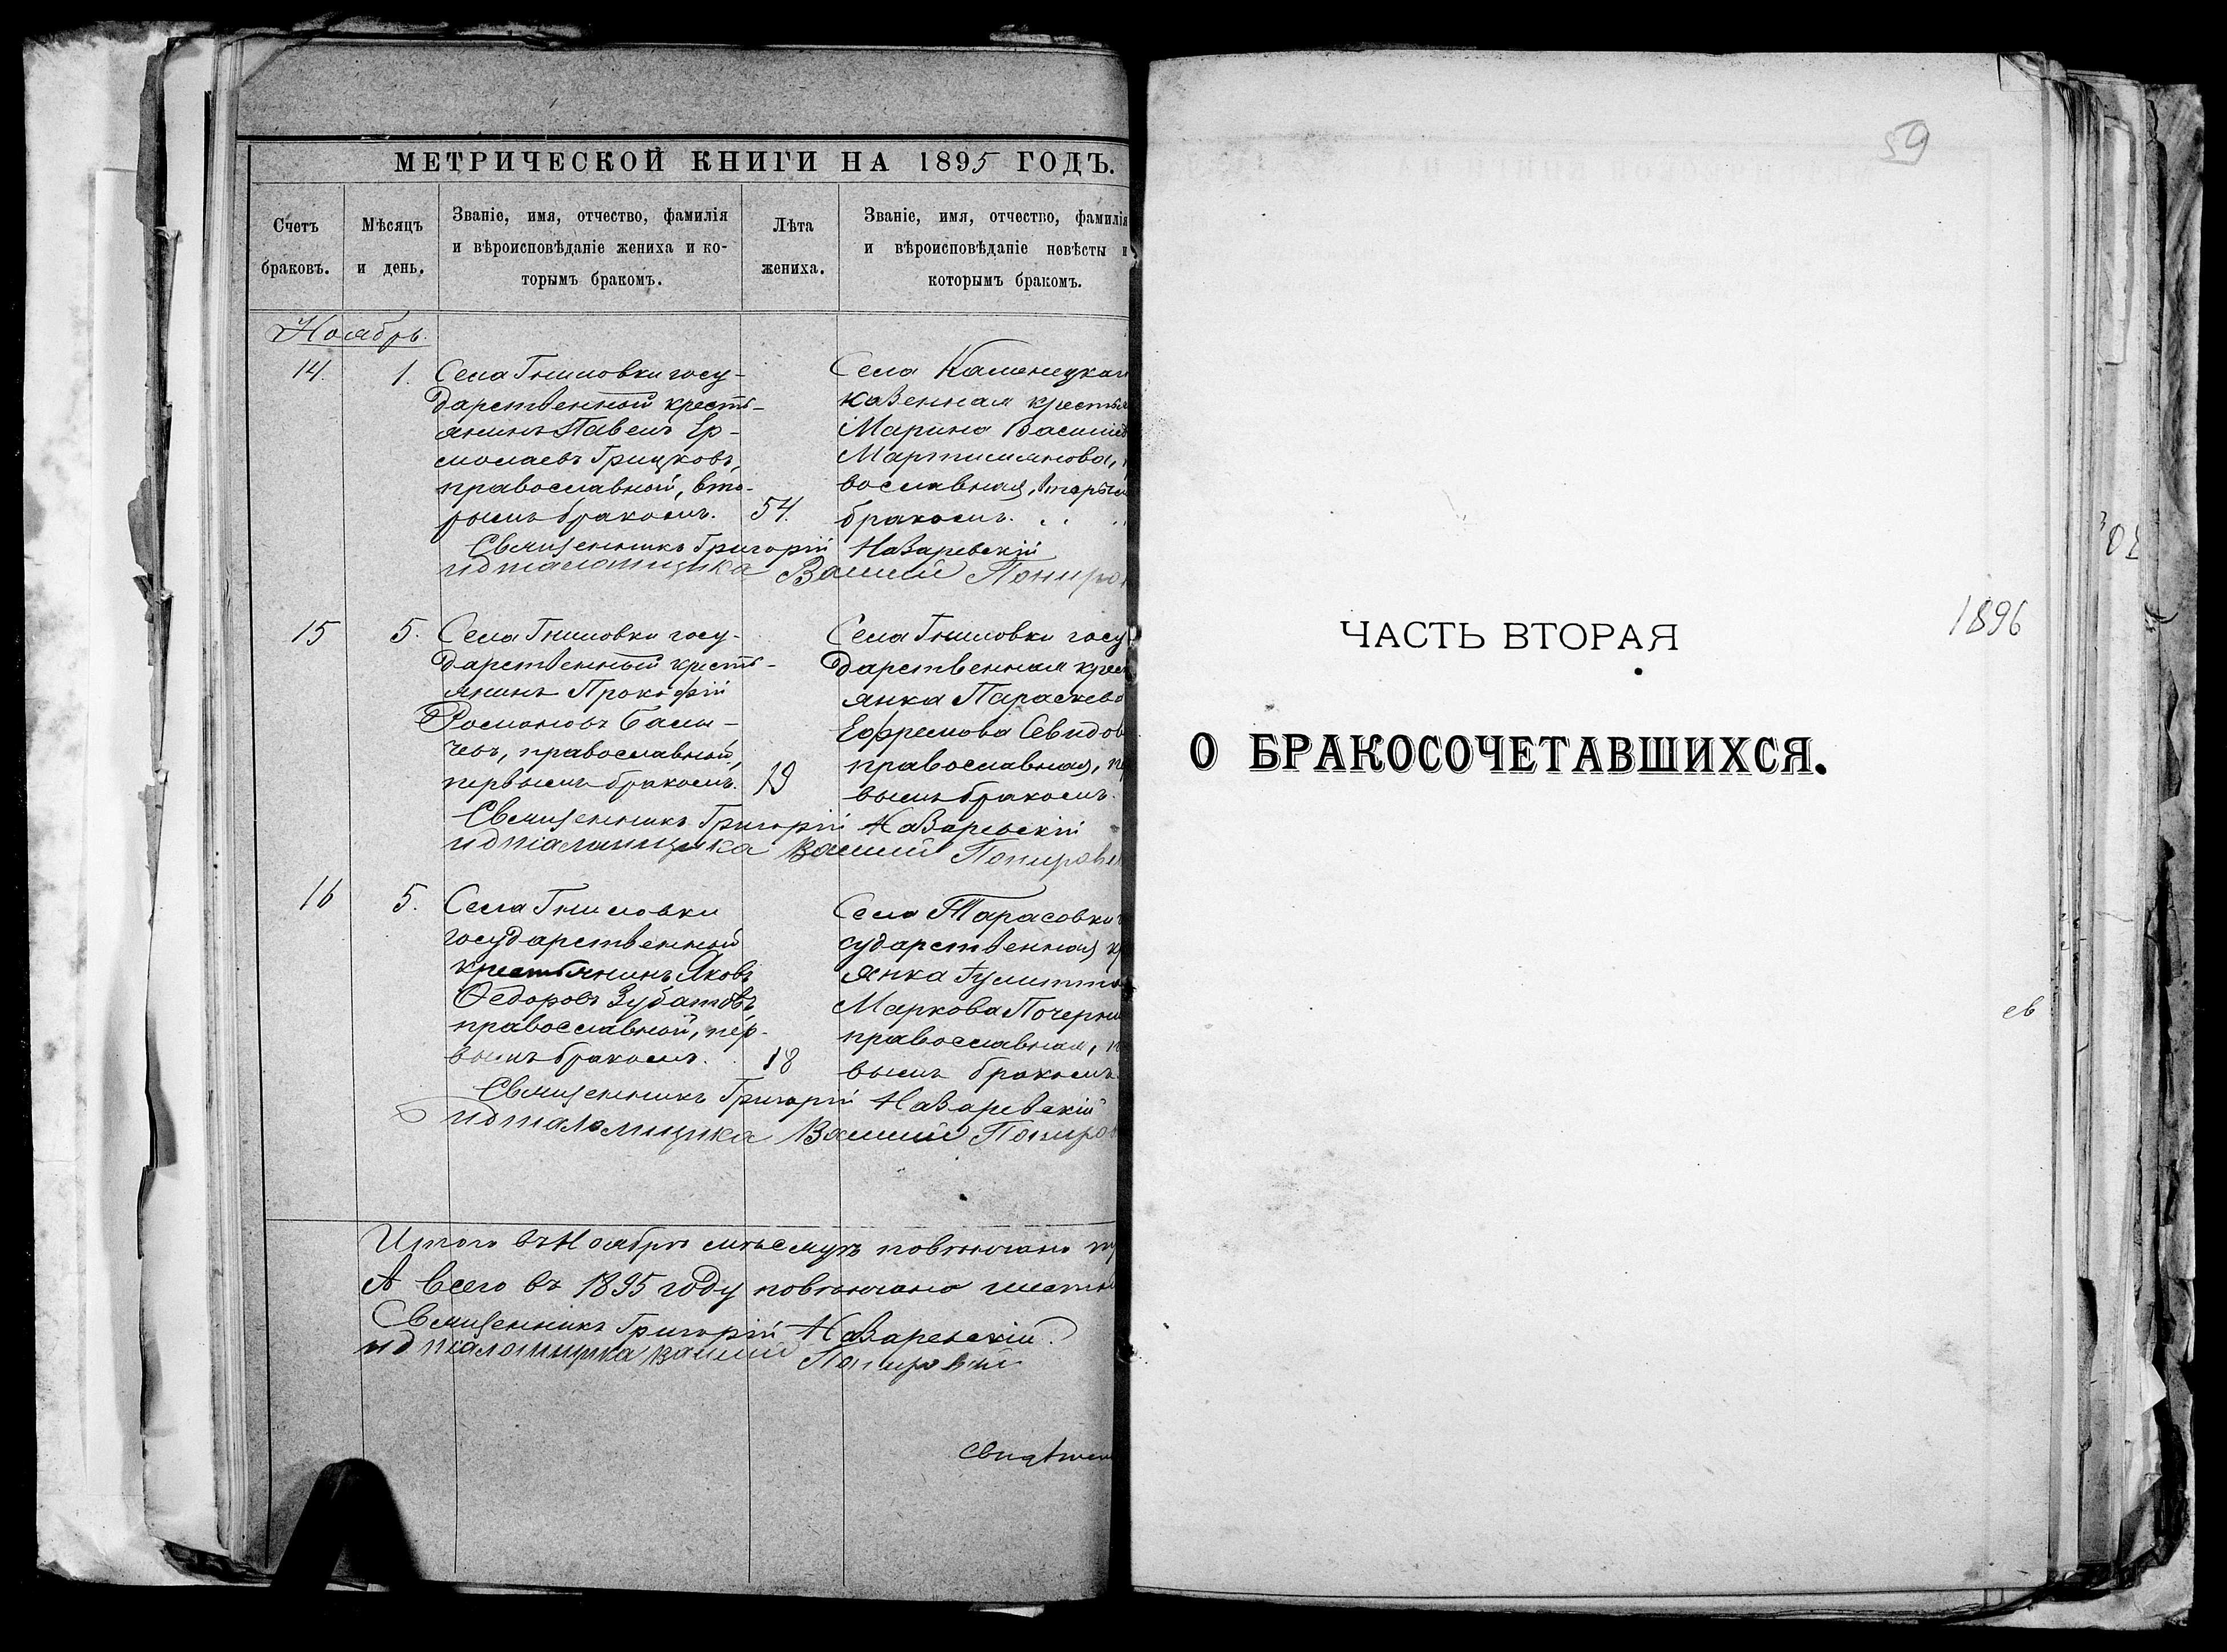 МЕТРИЧЕСКОЙ КНИГИ НА 1895 ГОДЪ.
Счетъ
браковъ.
Мѣсяцъ
и день.
Званіе, имя, отчество, фамилія
и вѣроисповѣданіе жениха и ко-
торымъ бракомъ.
Лѣта
жениха.
Званіе, имя, отчество, фамилія
и вѣроисповѣданіе невѣсты и
которымъ бракомъ.
Ноябрь.
14.
1.
Села Гниловки госу-
дарственной кресть-
янинъ Павелъ Ер-
молаевъ Грицковъ,
православной, вто-
рымъ бракомъ.
54.
Села
казенная
Марина
вославная,
бракомъ.
Священникъ Григорій Назаревскій
15
5.
Села Гниловки госу-
дарственный кресть-
янинъ Прокофій
Романовъ Балы-
чевъ, православный,
первымъ бракомъ.
19
Села Гниловки госу
дарственная крес
янка Параскева
Ефремова
православная,
вымъ бракомъ.
Священникъ Григорій Назаревскій
16
5.
Села Гниловки
государственной
крестьянинъ Яковъ
Ѳедоровъ Зубатовъ
православной, пер-
вымъ бракомъ.
18
Села Тарасовки
сударственная
янка
Маркова
православная,
вымъ бракомъ.
Священникъ Григорій Назаревскій
Итого въ Ноябрѣ мѣсяцѣ повѣнчано
А всего въ 1895 году повѣнчано
Священникъ Григорій Назаревскій.
59
1896
ЧАСТЬ ВТОРАЯ
О БРАКОСОЧЕТАВШИХСЯ.
ев